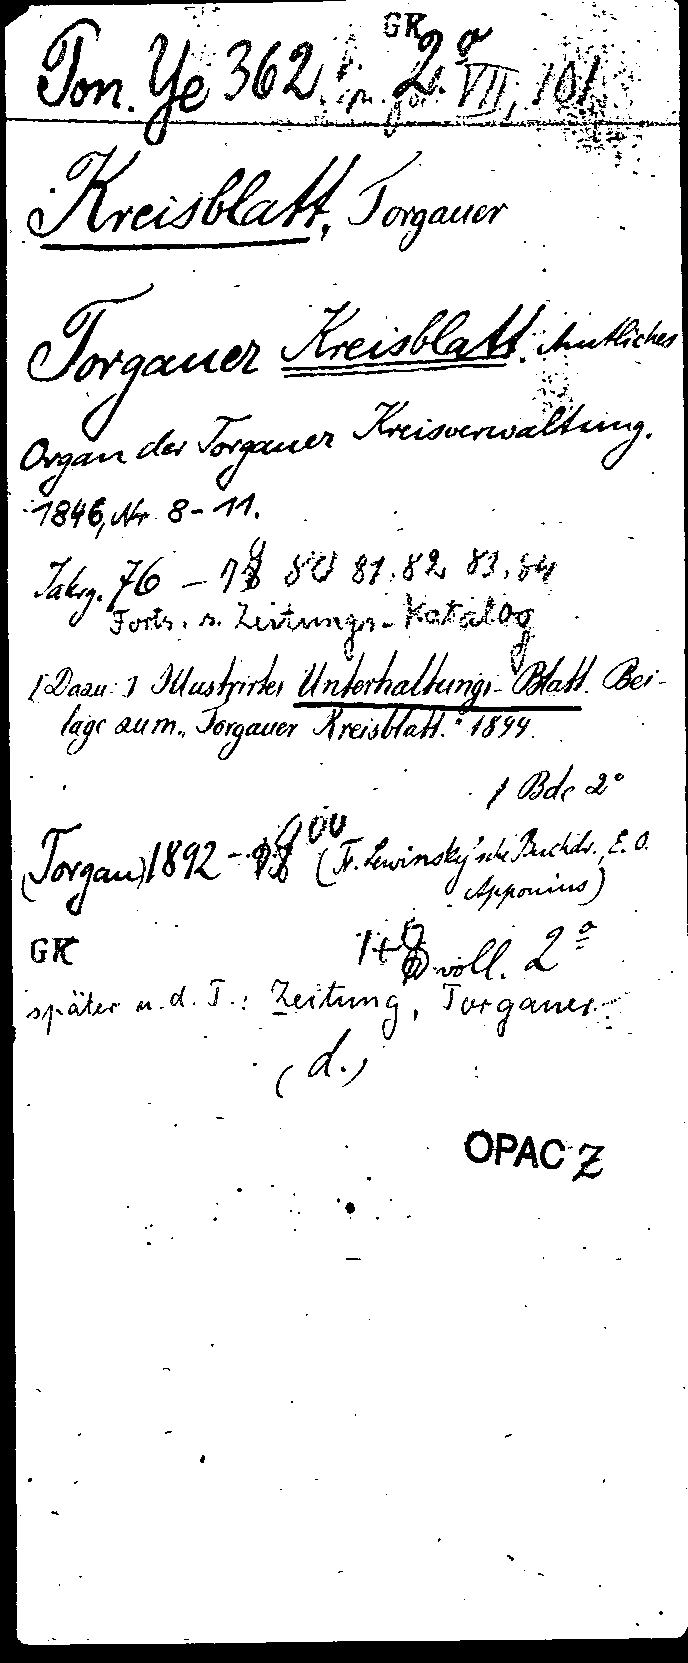 GK
Pon. Ye 362 2° VII, 101
Kreisblatt, Torgauer
Torgauer Kreisblatt. Amtliches
Organ der Torgauer Kreisverwaltung.
1846, Nr 8-11.
Jahrg. 76 - 80 81. 82 83. 84
Forts. s. Zeitungs-Katalog
[Dazu:] Illustrirtes Unterhaltungs-Blatt. Bei-
lage zum „Torgauer Kreisblatt." 1899.
1 Bde 2°
(Torgau) 1892 - 900 (Fr. Lewinsky'sche Buchdr., E. O.
Apponius)
GK
voll. 2°
später u. d. T.: Zeitung, Torgauer.
(d.)
OPAC Z